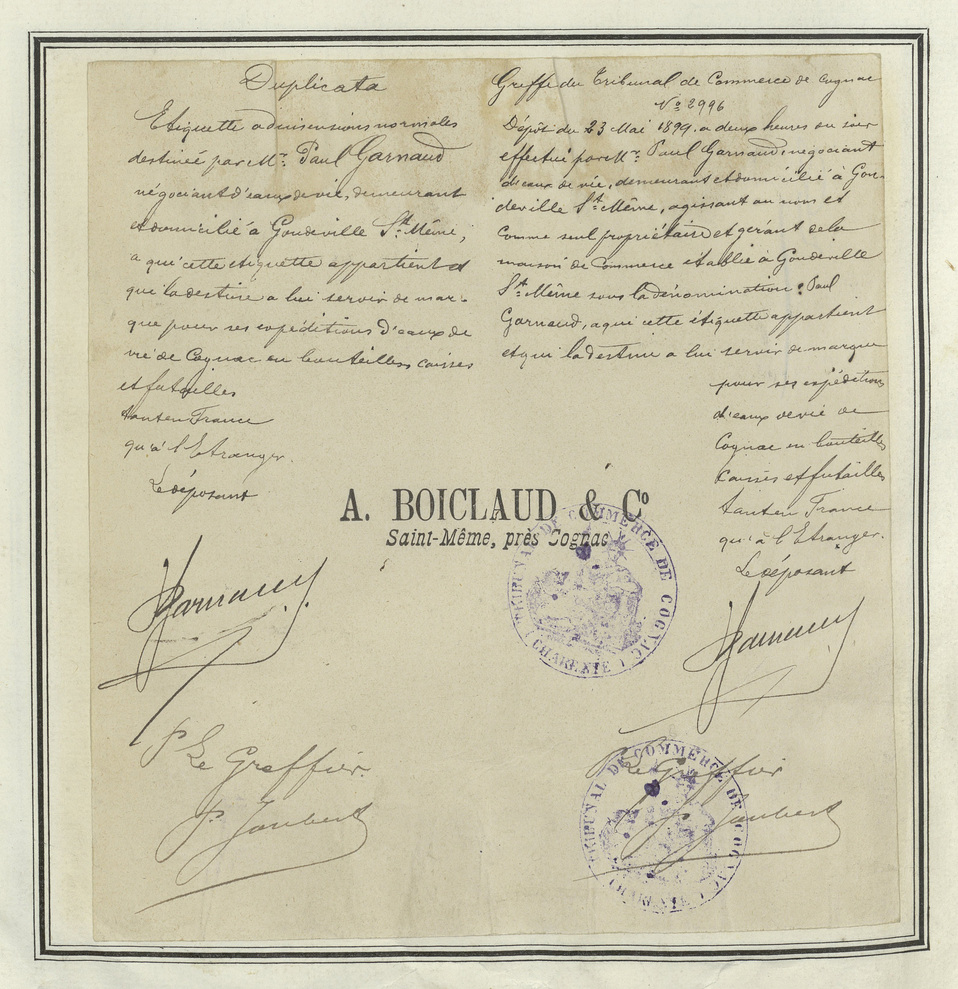 Duplicata
Etiquette a dimensions normales
destinée par Mr. Paul Garnaud
négociant d'eaux de vie, demeurant
et domicilié à Gondeville St. Même,
a qui cette etiquette appartient et
qui la destine a lui servir de mar-
que pour ses expéditions d'eaux de
vie de Cognac en bouteilles caisses
et futailles
tant en France
qu'à l'Etranger.
Le déposant
Garnaud
P Le Greffier.
P. Jaubert
Greffe du Tribunal de Commerce de Cognac
No 2996
Dépôt du 23 Mai 1899. a deux heures du soir
effectué par Mr. Paul Garnaud, négociant
d'eaux de vie, demeurant et domicilié à Gon-
deville St. Même, agissant au nom et
comme seul propriétaire et gérant de la
maison de Commerce établie à Gondeville
St. Même sous la dénomination: Paul
Garnaud, a qui cette étiquette appartient
et qui la destine a lui servir de marque
pour ses expéditions
d'eaux de vie de
Cognac en bouteilles
caisses et futailles
tant en France
qu'à l'Etranger.
Le déposant
Garnaud
P Le Greffier
P. Jaubert
A. BOICLAUD & Co
Saint-Même, près Cognac
TRIBUNAL DE COMMERCE DE COGNAC
(CHARENTE)
TRIBUNAL DE COMMERCE DE COGNAC
CHARENTE